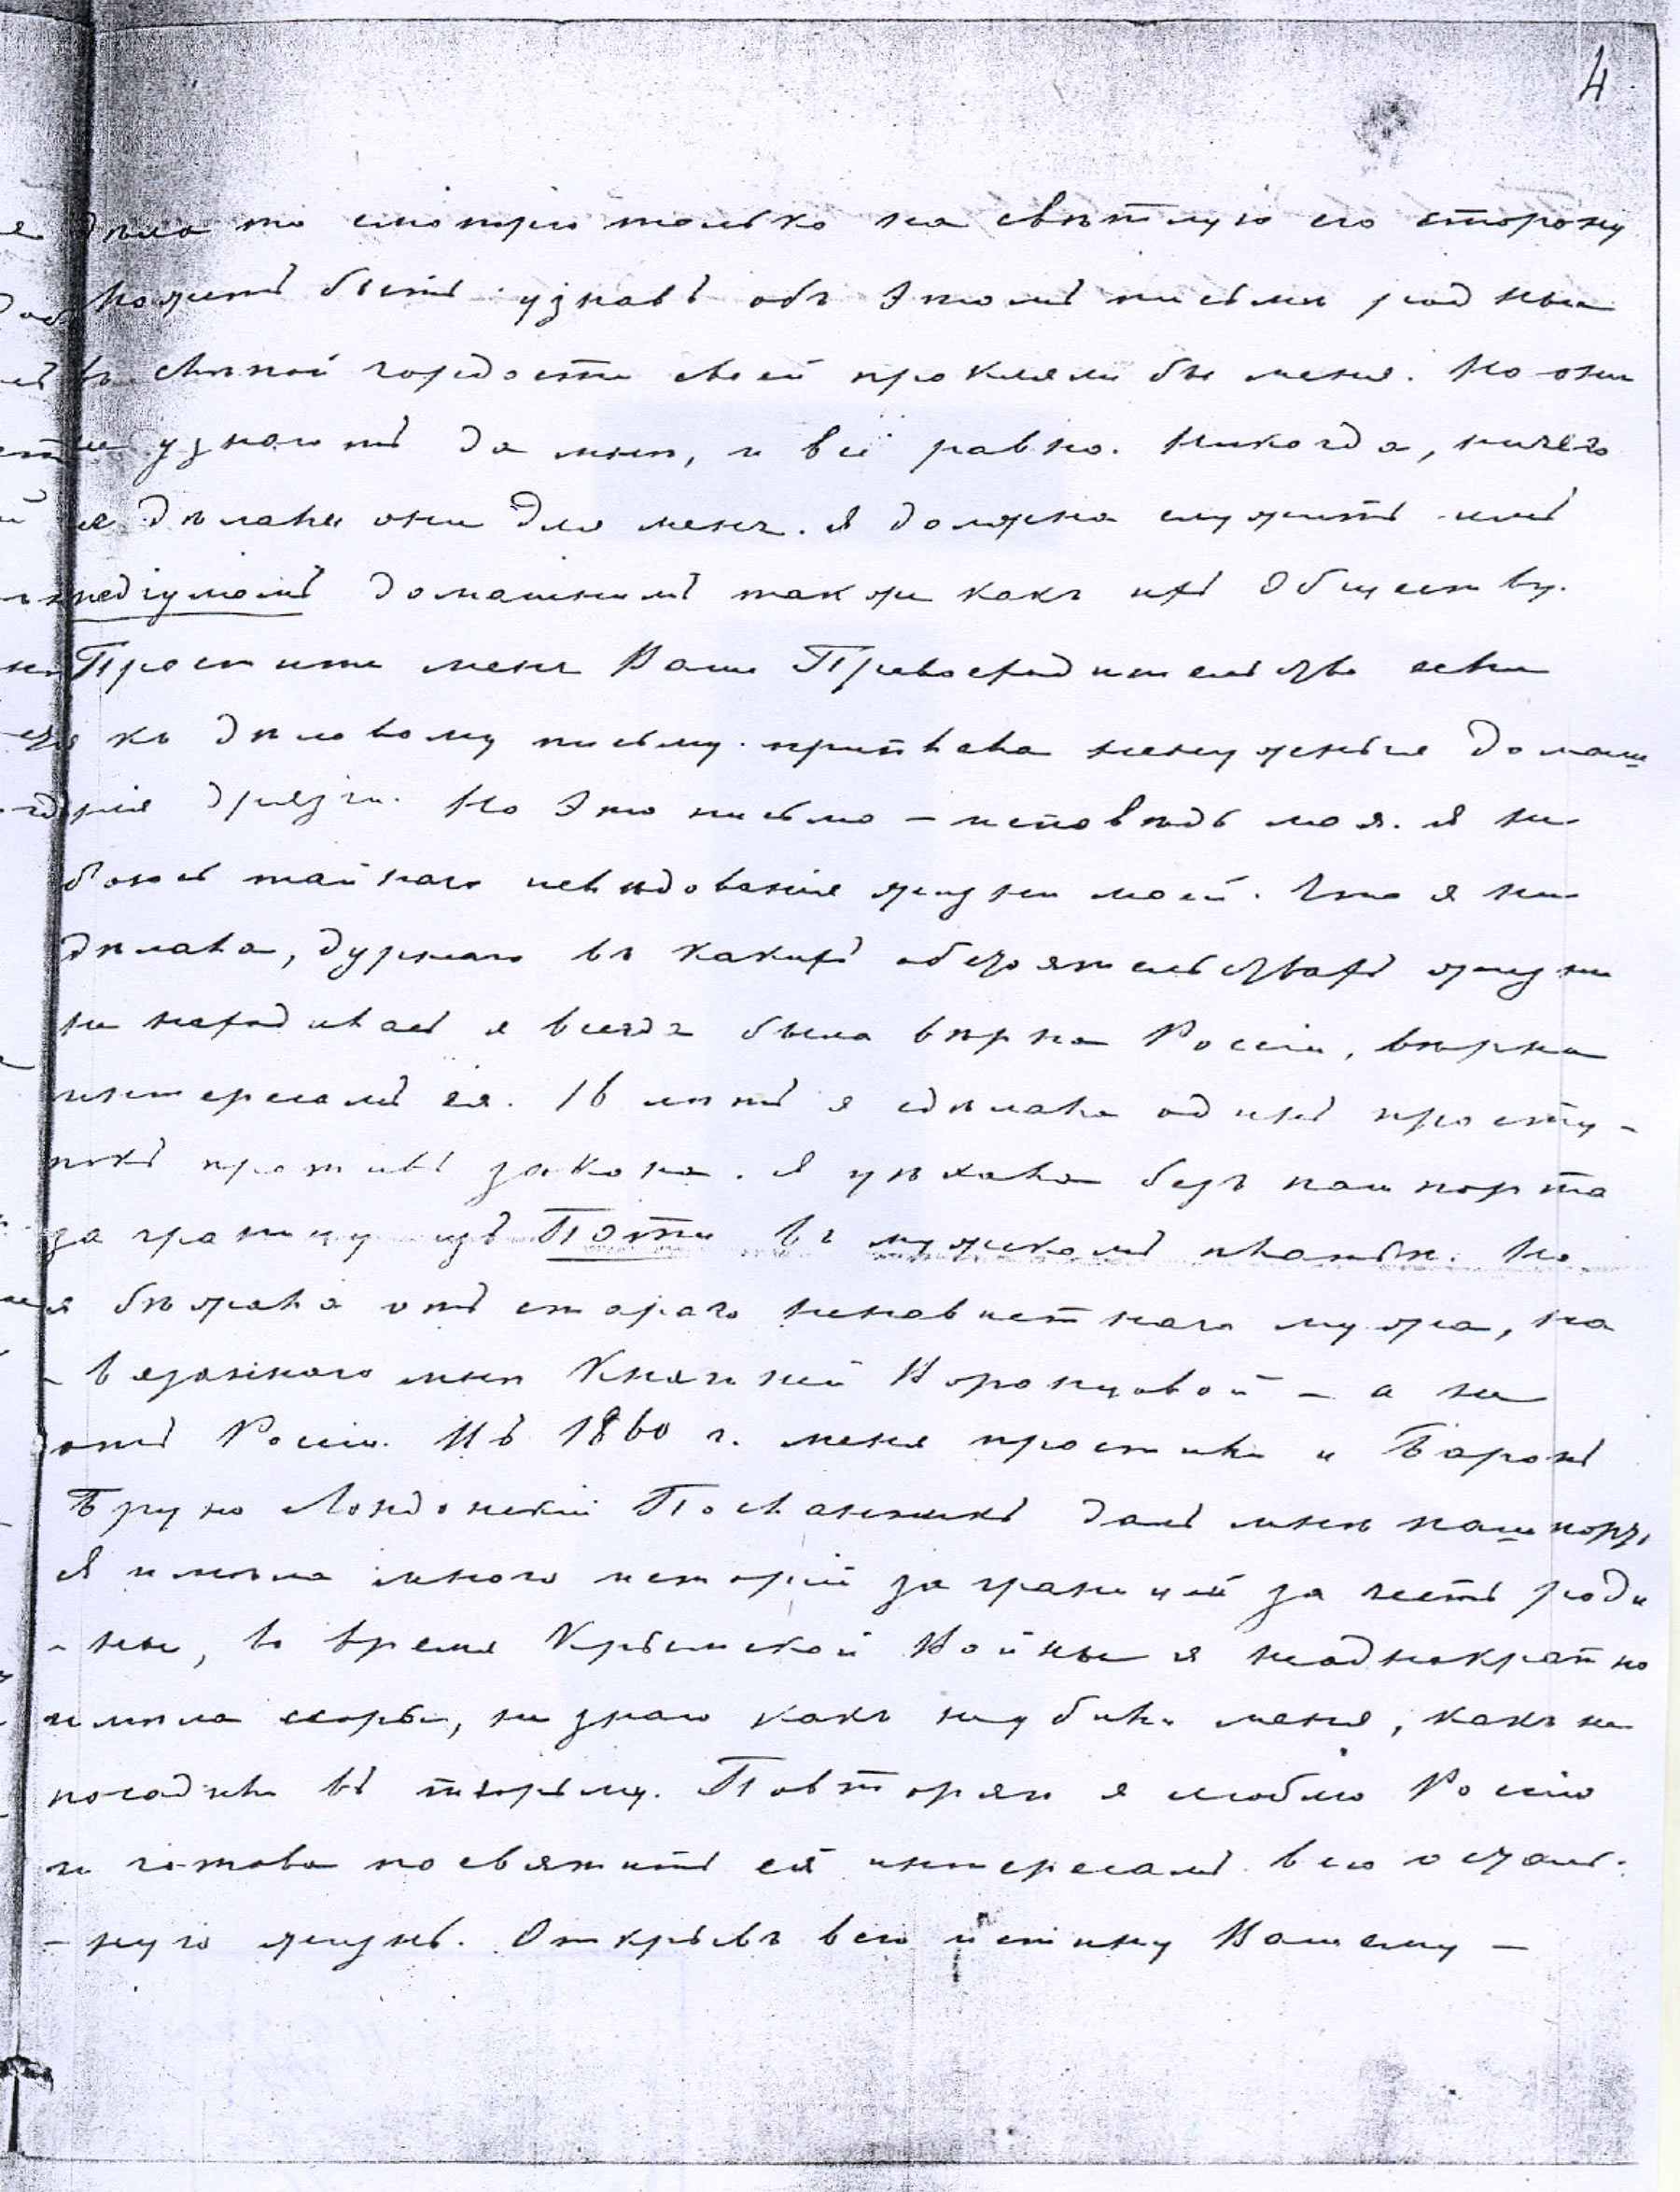 4
дѣла то смотрю только на свѣтлую его сторону
Можетъ быть узнавъ объ этомъ письмѣ родные
въ слѣпой гордости своей прокляли бы меня. Но они
не узнаютъ да мнѣ, и всё равно. Никогда, ничего
не дѣлали они для меня. Я должна служить имъ
медіумомъ домашнимъ также какъ ихъ Обществу.
Простите меня Ваше Превосходительство если
къ дѣловому письму приплела ненужные домаш
нія дрязги. Но это письмо – исповѣдь моя. Я не
боюсь тайнаго изслѣдованія жизни моей. Что я ни
дѣлала, дурнаго въ какихъ обстоятельствахъ жизни
ни находилась я всегда была вѣрна Россіи, вѣрна
интересамъ ея. 16 лѣтъ я сдѣлала одинъ просту-
покъ противъ закона. Я уѣхала безъ пашпорта
за границу изъ Поти въ мужскомъ платьѣ. Но
я бѣжала отъ стараго ненавистнаго мужа, на
- вязаннаго мнѣ Княгиней Воронцовой – а не
отъ Россіи. Въ 1860 г. меня простили и Баронъ
Бруно Лондонскій Посланникъ далъ мнѣ пашпортъ
Я имѣла много исторій за границей за честь роди
- ны, во время Крымской Войны я неоднократно
имѣла ссоры, не знаю какъ не убили меня, какъ не
посадили въ тюрьму. Повторяю я люблю Россію
и готова посвятить ея интересамъ всю осталь-
- ную жизнь. Открывъ всю истину Вашему –